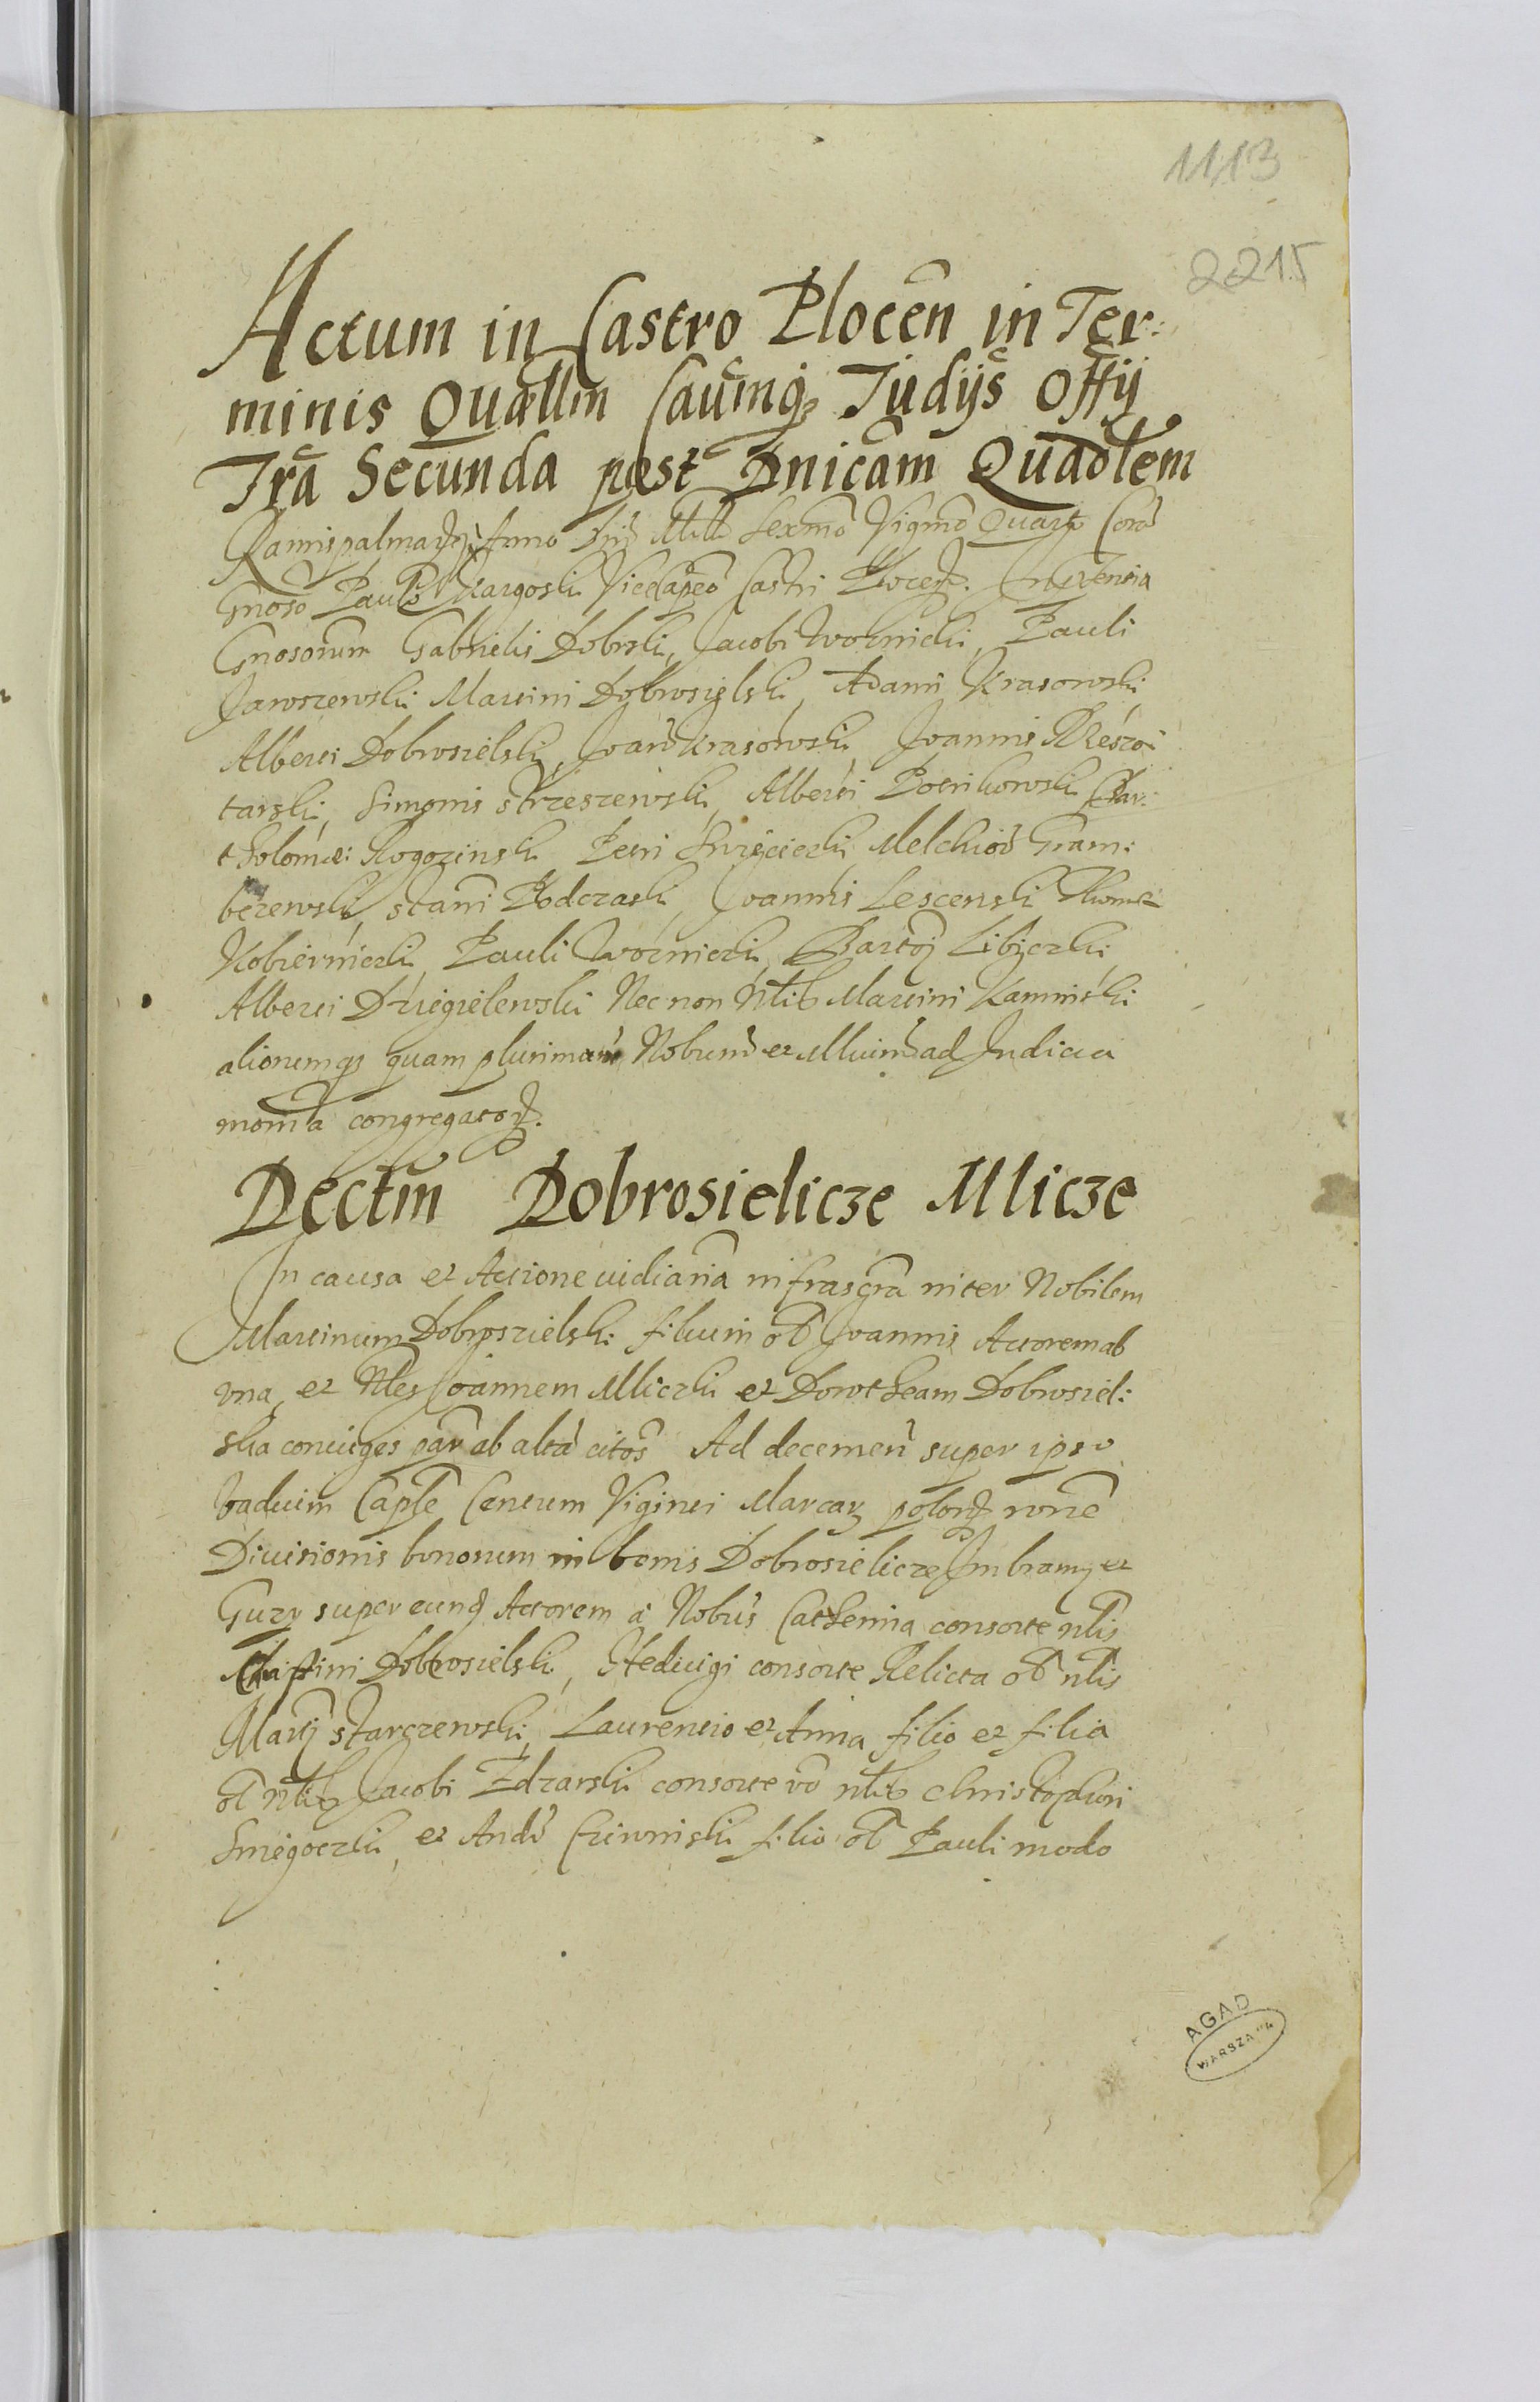 1113
2215
Actum in Castro Plocen̄ in Ter:
minis Quællm̄ Cauīmqȝ Iudijs Offij
Fr̄a Secunda post Dnicam Quadłem
Ramispalmarꝝ Anno Dn̄i Mill̄o Sexm̄o Vigm̄o Quarto Corā
Gn̄oso Paulo Kargoski Vicecapn̄eo Castri Plocen̄. In p̄ntia
Gnosorum Gabrielis Dobrski, Jacobi Woznicki, Pauli
Jaroszewski Martini Dobrosielski, Adami Krasowski
Alberti Dobrosielski, Joan̄ Krasowski, Joannis
tarski, Simonis Strzeszewski, Alberti Potrikowski Bar:
tholomæi Rogozinski Petri Swięcicki, Melchior̄ Gram:
bczewski, Stani Podczaski, Joannis Lescenski Thomæ
Kobiernicki, Pauli Woznicki, Bartoȷ̄ Libiczki
Alberti Dziegielewski Nec non Nłis Martini Kaminski
aliorumqȝ quam plurimorū Nobiliū et Ministad Judicia
mom̄a congregatorꝝ.
Dectm̄ Dobrosielicze Mlicze
In causa et Actione vidiaria infrascr̄a inter Nobilem
Martinum Dobroszielski filium ol̄ Joannis Actorem ab
vna, et Nłes Joannem Mliczki et Dorotheam Dobrosiel:
ska coniuges par̄ ab altā citōs Ad decernen̄ super ipso
vadium Caplē Centum Viginti Marcarꝝ polonꝝ rōnē
Diuisionis bonorum in bonis Dobrosielicze Imbramÿ et
Guzy super eundꝰ Actorem á Nobus Catherina consorte nłis
Christini Dobrosielski, Hedwigi consorte Relicta ol̄ nłis
Marti Starczewski, Laurentio et Anna filio et filia
ol̄ nłis Jacobi Zdzarski consorte vō nłis Christophori
Smigoczki, et Andr̄ Czewinski filio ol̄ Pauli modo
AGAD
WARSZAWA